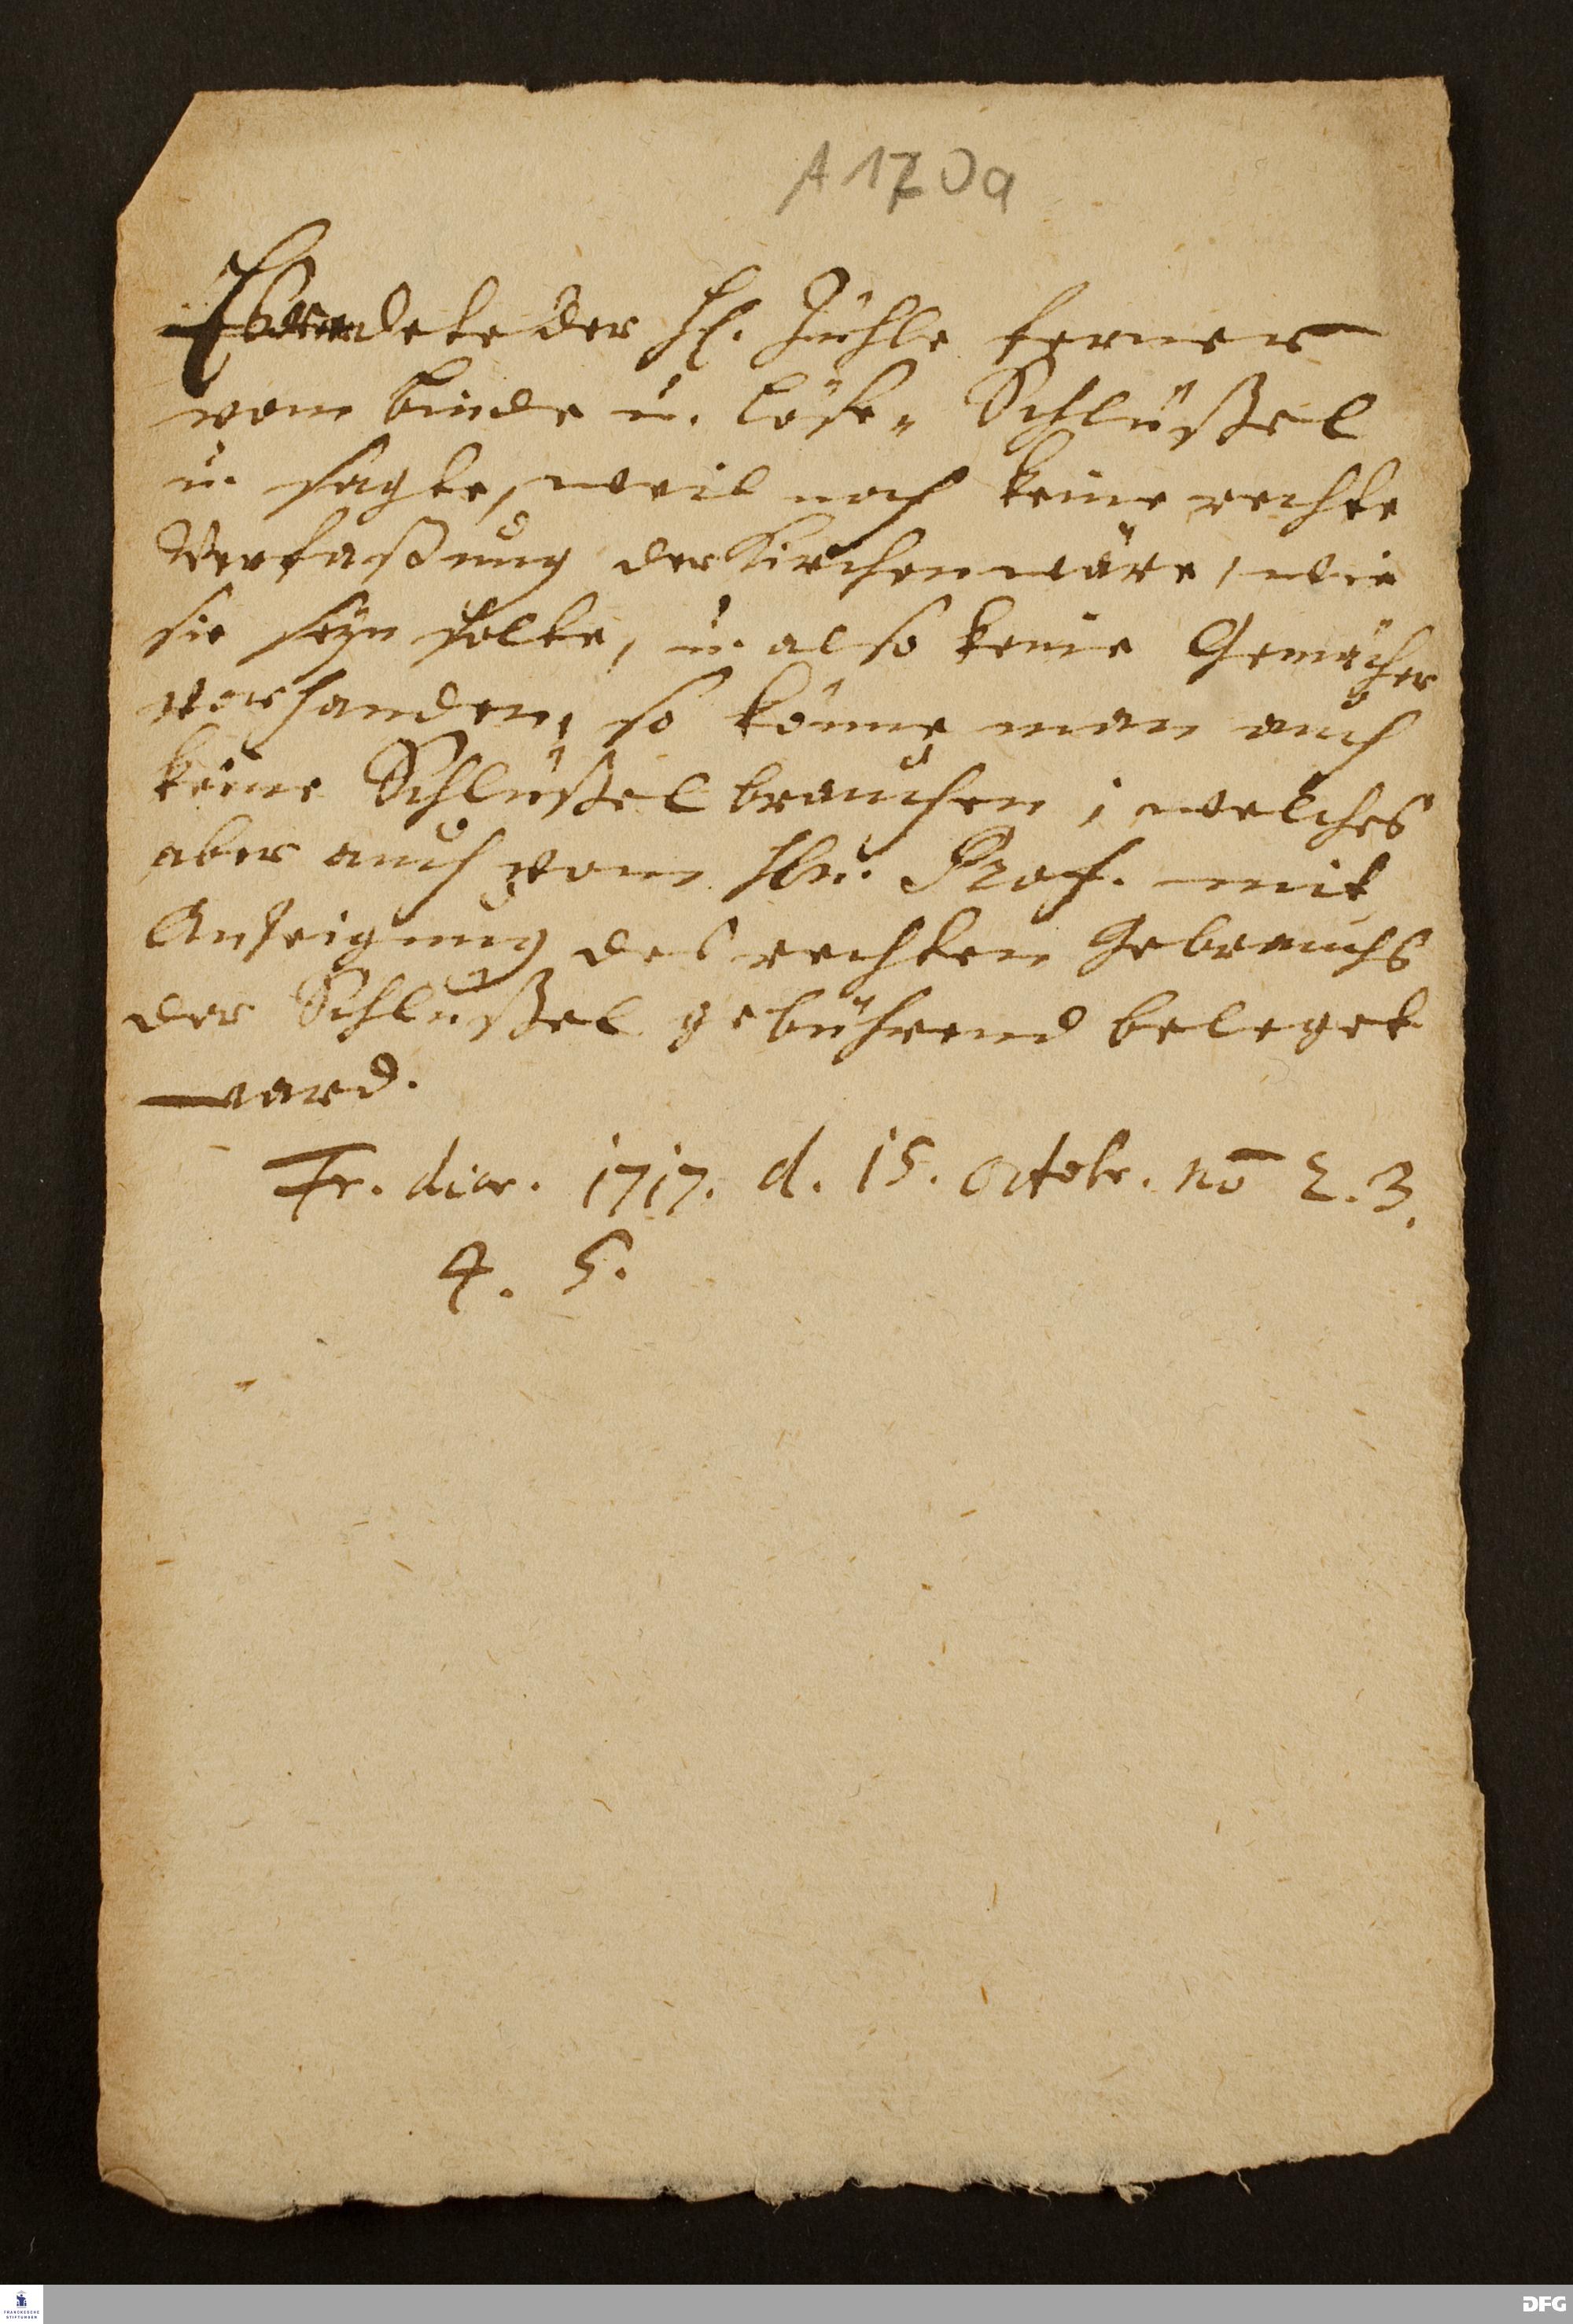 A 170a
redete der H. Zühle ferner
vom binde u. Löse-Schlüßel
u. sagte, weil noch keine rechte
Verfaßung der Kirchen wäre, wie
sie seyn solte, u. also keine Gemächer
vorhanden, so könne man auch
keine Schlüßel brauchen; welches
aber auch vom Hn. Prof. mit
Anzeigung des rechten Gebrauchs
der Schlüßel gebührend beleget
ward.
Fr. diar. 1717. d. 15. Octobr. no 2. 3.
4. 5.
FRANCKESCHE
STIFTUNGEN
DFG